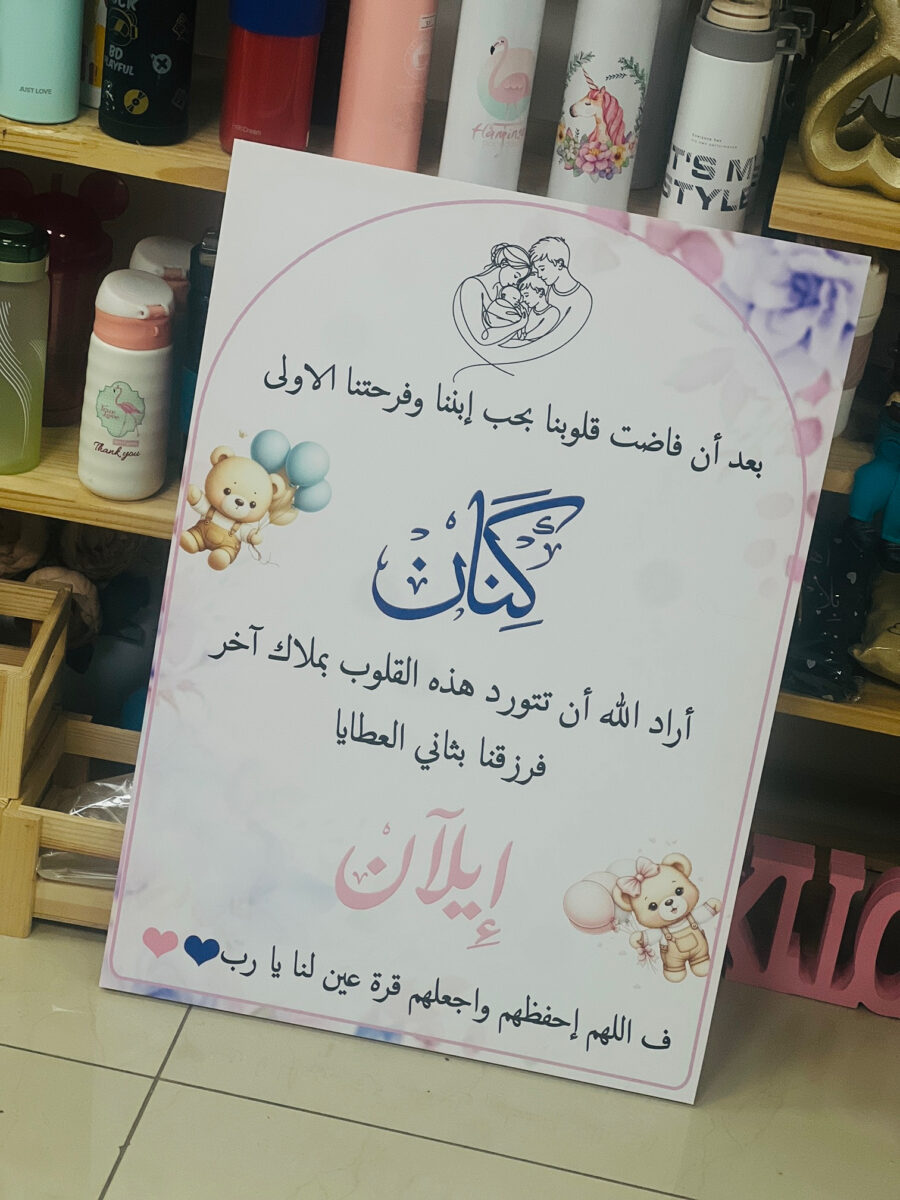 JUST LOVE
BD
PLAYFUL
Flamingo
IT'S MY
STYLE
Thank you
بعد أن فاضت قلوبنا بحب إبننا وفرحتنا الاولى
كِنَان
أراد الله أن تتورد هذه القلوب بملاك آخر
فرزقنا بثاني العطايا
إيلآن
ف اللهم إحفظهم واجعلهم قرة عين لنا يا رب